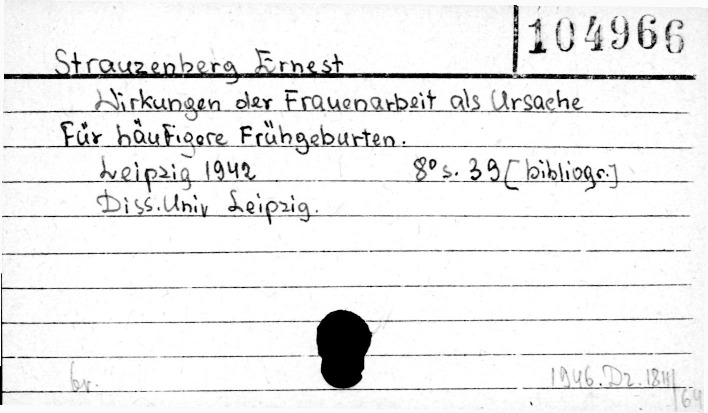 104966
Strauzenberg Ernest
Wirkungen der Frauenarbeit als Ursache
für häufigere Frühgeburten.
Leipzig 1942 8° s. 39 [bibliogr.]
Diss. Univ Leipzig.
br. 1946. Dz.